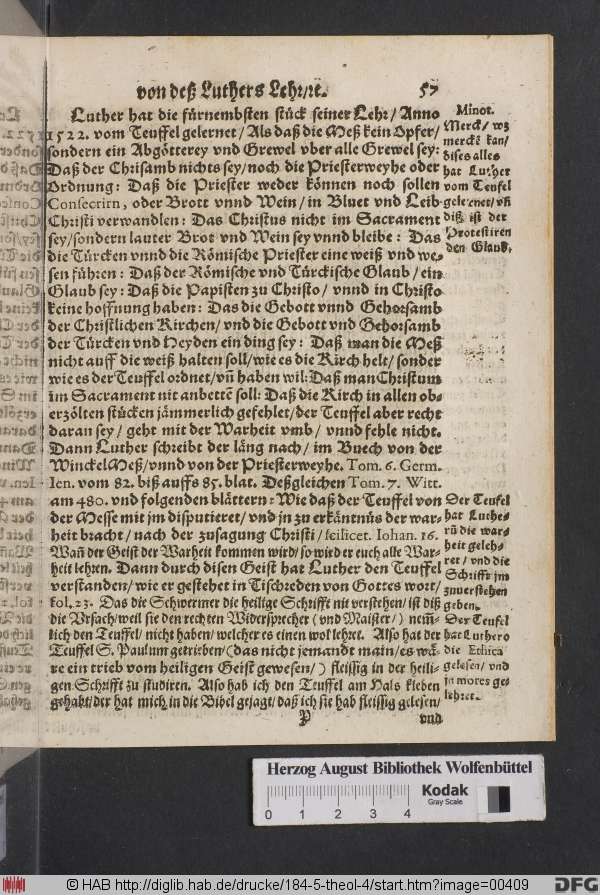 von deß Luthers Lehr/ ꝛc. 57
Luther hat die fürnembsten stück seiner Lehr / Anno
1522. vom Teuffel gelernet / Als daß die Meß kein Opfer /
sondern ein Abgötterey vnd Grewel vber alle Grewel sey:
Daß der Chrisamb nichts sey / noch die Priesterweyhe oder
Ordnung: Daß die Priester weder können noch sollen
Consecrirn, oder Brott vnnd Wein / in Bluet vnd Leib
Christi verwandlen: Das Christus nicht im Sacrament
sey / sondern lauter Brot vnd Wein sey vnnd bleibe: Das
die Türcken vnnd die Römische Priester eine weiß vnd we-
sen führen: Daß der Römische vnd Türckische Glaub / ein
Glaub sey: Daß die Papisten zu Christo / vnnd in Christo
keine hoffnung haben: Das die Gebott vnnd Gehorsamb
der Christlichen Kirchen / vnd die Gebott vnd Gehorsamb
der Türcken vnd Heyden ein ding sey: Daß man die Meß
nicht auff die weiß halten soll / wie es die Kirch helt / sonder
wie es der Teuffel ordnet / vn̄ haben wil: Daß man Christum
im Sacrament nit anbettē soll: Daß die Kirch in allen ob-
erzölten stücken jämmerlich gefehlet / der Teuffel aber recht
daran sey / geht mit der Warheit vmb / vnnd fehle nicht.
Dann Luther schreibt der läng nach / im Buech von der
WinckelMeß / vnnd von der Priesterweyhe. Tom. 6. Germ.
Ien. vom 82. biß auffs 85. blat. Deßgleichen Tom. 7. Witt.
am 480. vnd folgenden blättern: Wie daß der Teuffel von
der Messe mit jm disputieret / vnd jn zu erkäntnüs der war-
heit bracht / nach der zusagung Christi / scilicet. Iohan. 16.
Wan̄ der Geist der Warheit kommen wird / so wird er euch alle War-
heit lehren. Dann durch disen Geist hat Luther den Teuffel
verstanden / wie er gestehet in Tischreden von Gottes wort /
fol. 23. Das die Schwermer die heilige Schrifft nit verstehen / ist diß
die Vrsach / weil sie den rechten Widersprecher (vnd Maister /) nem̄-
lich den Teuffel / nicht haben / welcher es einen wol lehret. Also hat der
Teuffel S. Paulum getriben / (das nicht jemandt main / es wä-
re ein trieb vom heiligen Geist gewesen /) fleissig in der heili-
gen Schrifft zu studiren. Also hab ich den Teuffel am Hals kleben
gehabt / der hat mich in die Bibel gejagt / daß ich sie hab fleissig gelesen /
P vnd
Minor.
Merck / wz
merckē kan /
dises alles
hat Luther
vom Teufel
gelernet / vn̄
diß ist der
Protestiren
den Glaub.
Der Teufel
hat Luthe-
rū die war-
heit geleh-
ret / vnd die
Schrifft jm
zuuerstehen
geben.
Der Teufel
hat Luthero
die Ethica
gelesen / vnd
jn mores ge-
lehret.
Herzog August Bibliothek Wolfenbüttel
0 1 2 3 4
Kodak
Gray Scale
© HAB http://diglib.hab.de/drucke/184-5-theol-4/start.htm?image=00409
DFG